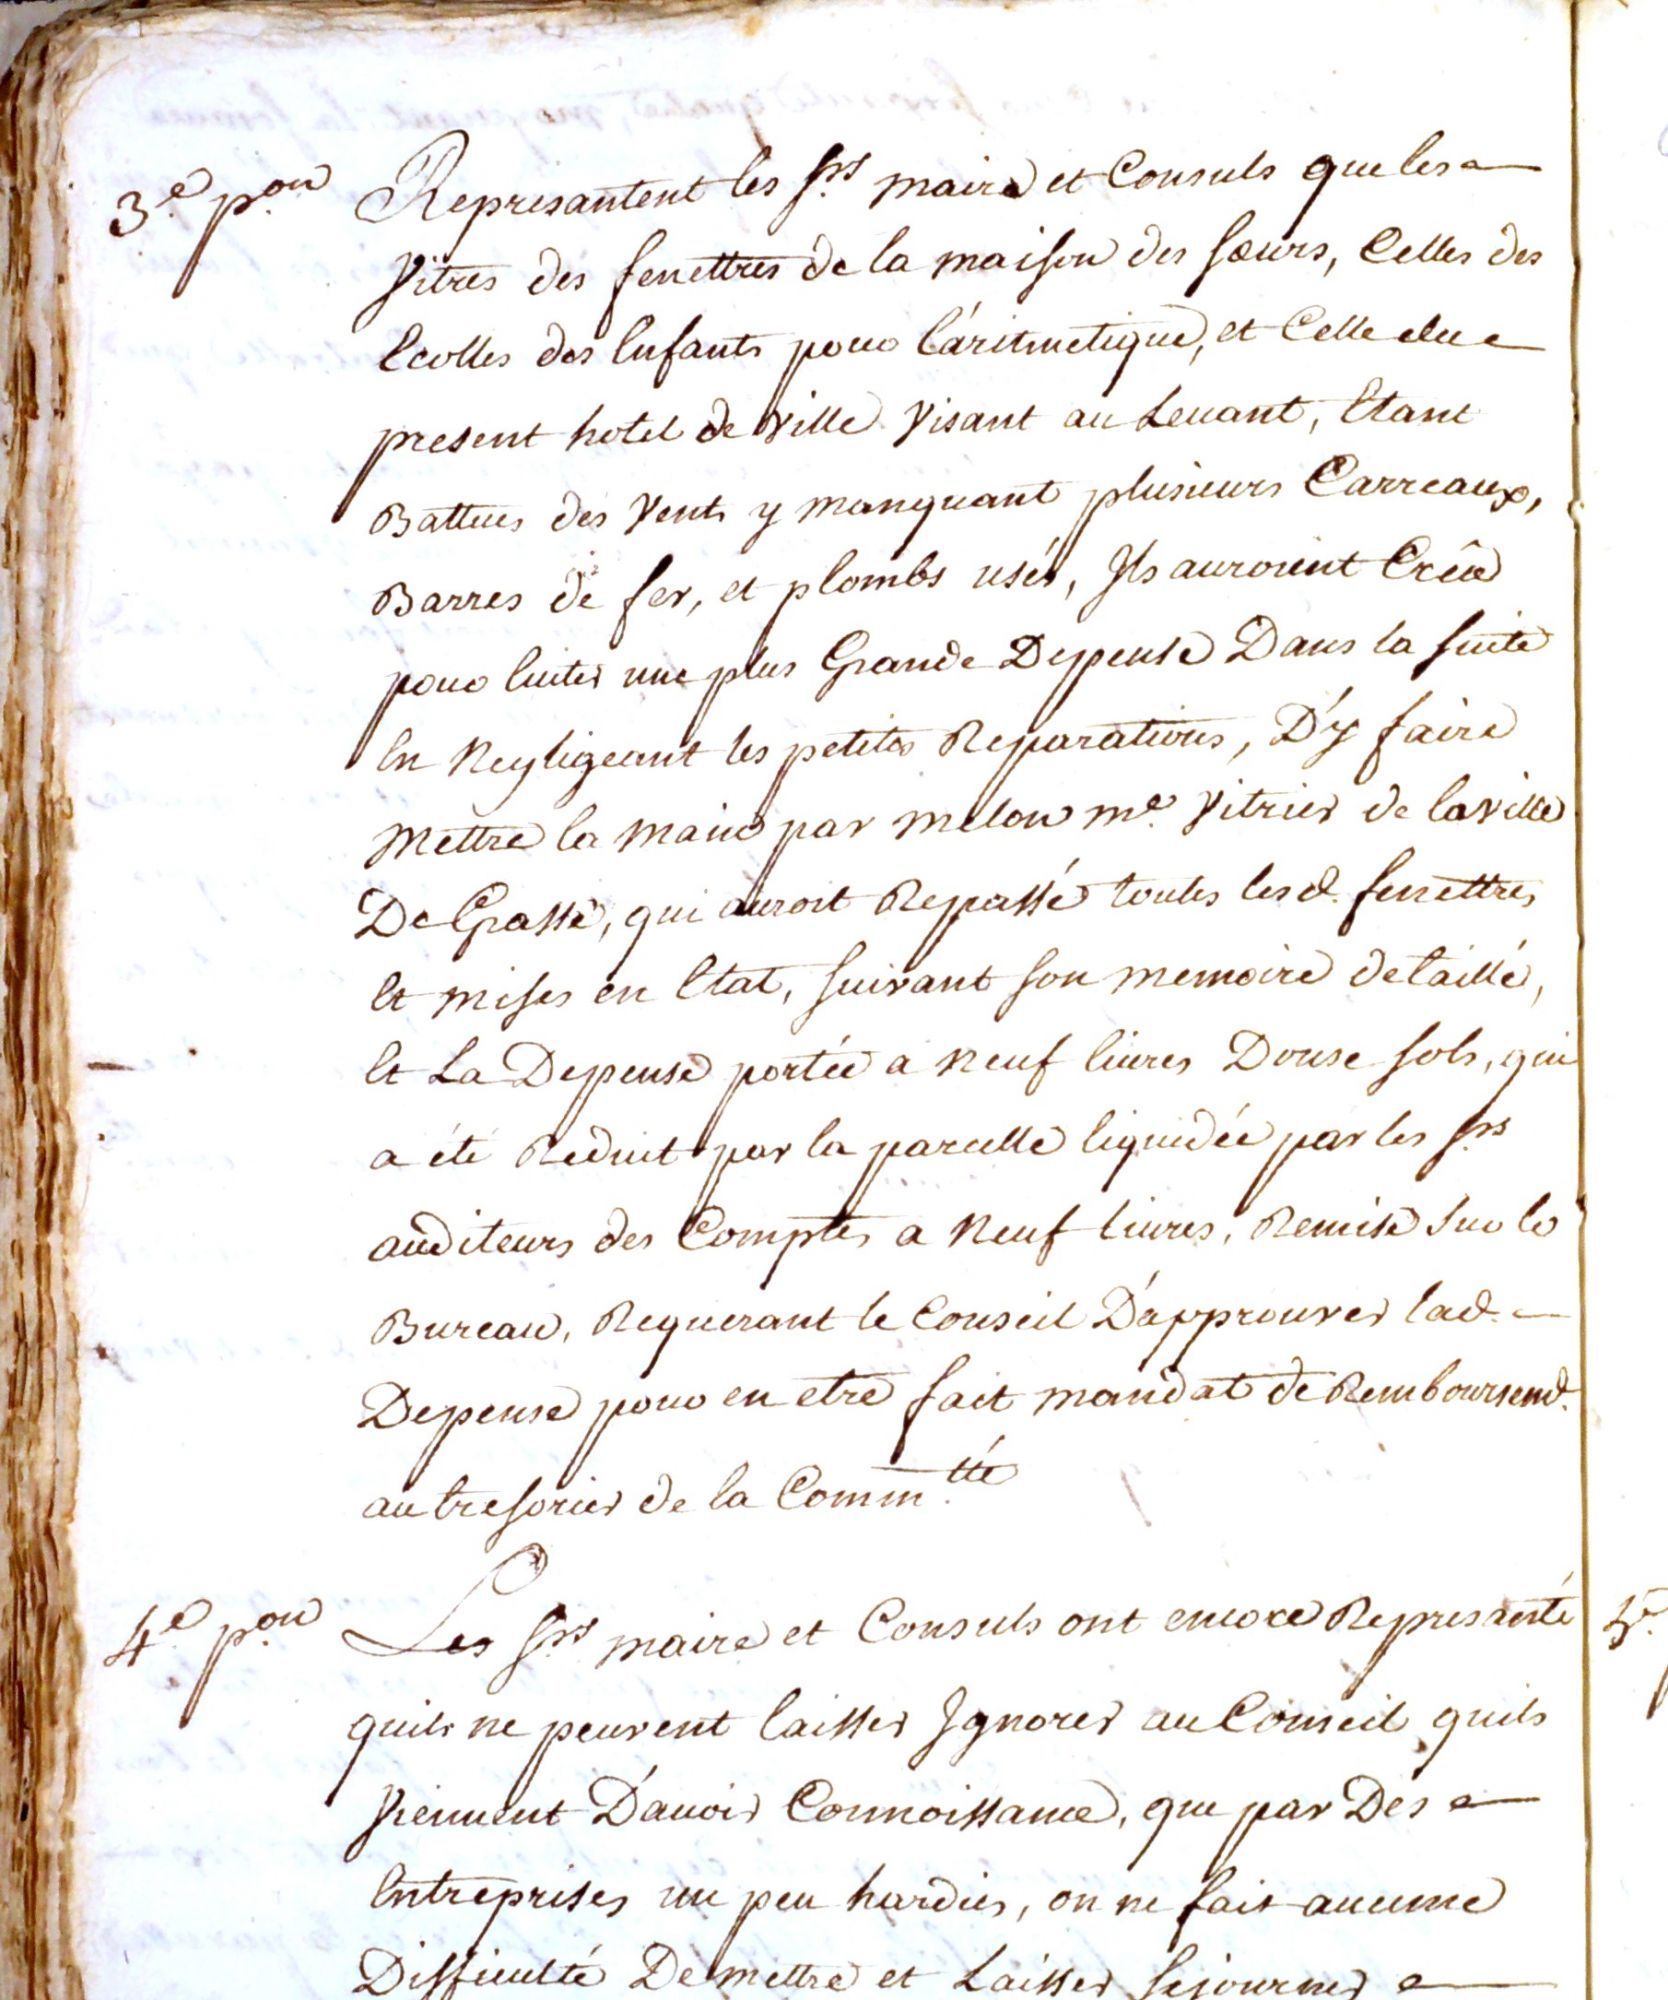 3.e p.on Represantent les srs maire et Consuls que les
Vitres des fenettres de la maison des sœurs, Celles des
Ecolles des Enfants pour l'aritmetique, et Celle du
present hotel de ville Visant au Levant, Etant
Battues des Vents y manquant plusieurs Carreaux,
Barres de fer, et plombs usés, Ils auroient Crêu
pour Eviter une plus Grande Depense Dans la suite
En Negligeant les petites Reparations, D'y faire
Mettre la main par melon me. Vitrier de la Ville
De Grasse, qui auroit Repassé toutes lesd. fenettres
Et mises en Etat, suivant son memoire detaillé,
Et La Depense portée a Neuf livres Douse sols, qui
a été Reduit par la parcelle liquidée par les srs
auditeurs des Comptes a Neuf livres, Remise sur le
Bureau, Requerant le Conseil D'approuver lad.
Depense pour en etre fait mandat de Remboursemt.
au tresorier de la Comm.tté
4.e p.on Les srs maire et Consuls ont encore Represanté
quils ne peuvent laisser Ignorer au Conseil quils
Viennent D'avoir Connoissance, que par Des
Entreprises un peu hardies, on ne fait aucune
Difficulté De mettre et Laisser sejourner
5.e